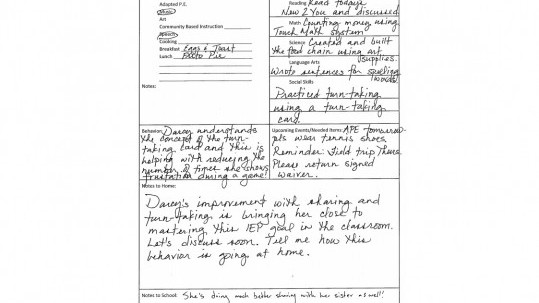 Adapted P.E.
Music
Art
Community Based Instruction
Speech
Cooking
Breakfast Eggs & Toast
Lunch Pie
Notes:
Reading Read today's
New 2 You and discussed
Math Counting money using
Touch Math system
Science Created and built
the food chain using art
supplies.
Language Arts
Wrote sentences for spelling
words.
Social Skills
Practiced turn-taking
using a turn-taking
card.
Behavior: Darcy understands
the concept of the turn-
taking card and this is
helping with reducing the
number of times she shows
frustration during a game!
Upcoming Events/Needed Items: APE tomorrow
pls wear tennis shoes
Reminder: Field trip Thurs.
Please return signed
waiver.
Notes to Home:
Darcy's improvement with sharing and
turn-taking is bringing her close to
mastering this IEP goal in the classroom.
Let's discuss soon. Tell me how this
behavior is going at home.
Notes to School: She's doing much better sharing with her sister as well!